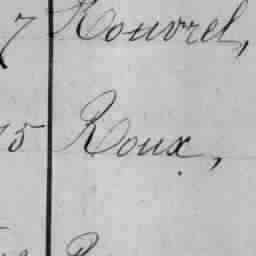 7 Rouvrel,
5 Roux,